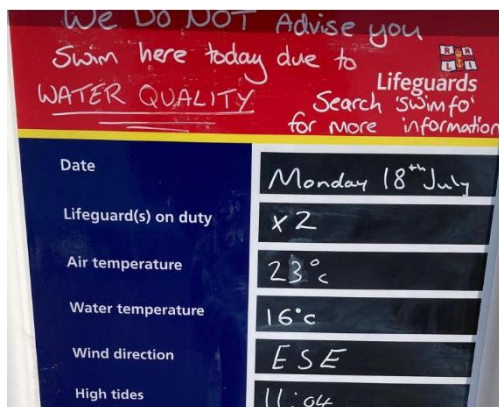 We Do NOT Advise you
Swim here today due to
WATER QUALITY
RNLI
Lifeguards
Search 'Swimfo'
for more information
Date Monday 18th July
Lifeguard(s) on duty x2
Air temperature 23°c
Water temperature 16°c
Wind direction ESE
High tides 11:04